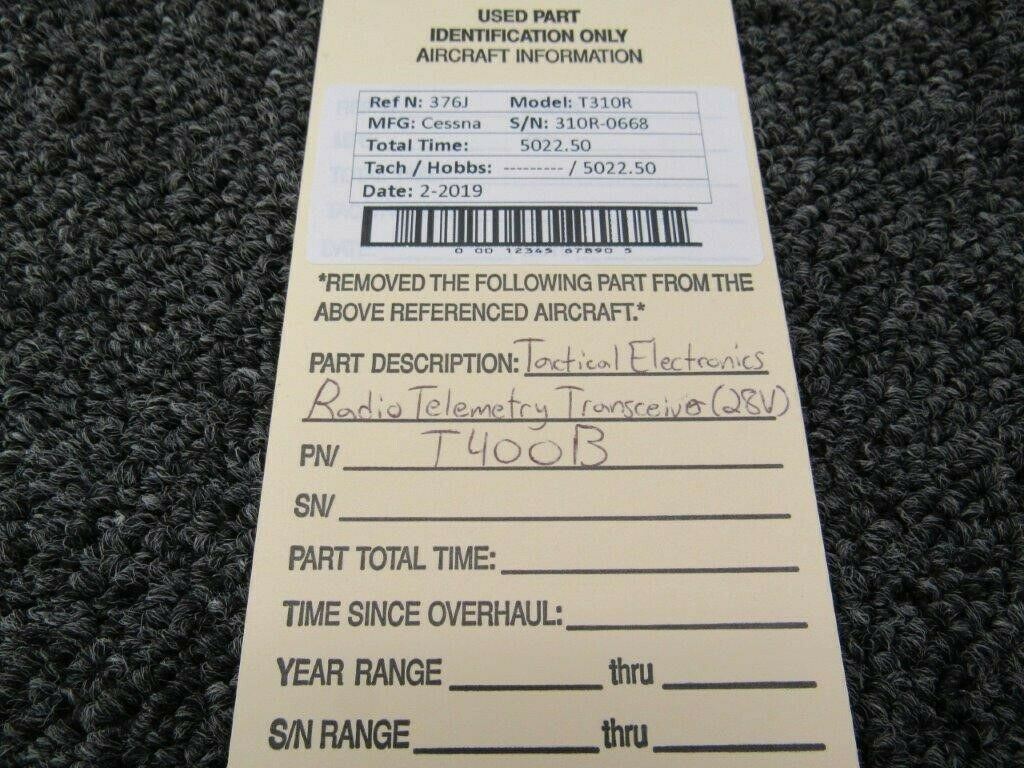 USED PART
IDENTIFICATION ONLY
AIRCRAFT INFORMATION
Ref N: 376J Model: T310R
MFG: Cessna S/N: 310R-0668
Total Time: 5022.50
Tach / Hobbs: --------- / 5022.50
Date: 2-2019
0 00 12345 67890 5
*REMOVED THE FOLLOWING PART FROM THE
ABOVE REFERENCED AIRCRAFT.*
PART DESCRIPTION: Tactical Electronics
Radio Telemetry Transceiver (28V)
PN/ T400B
SN/
PART TOTAL TIME:
TIME SINCE OVERHAUL:
YEAR RANGE thru
S/N RANGE thru